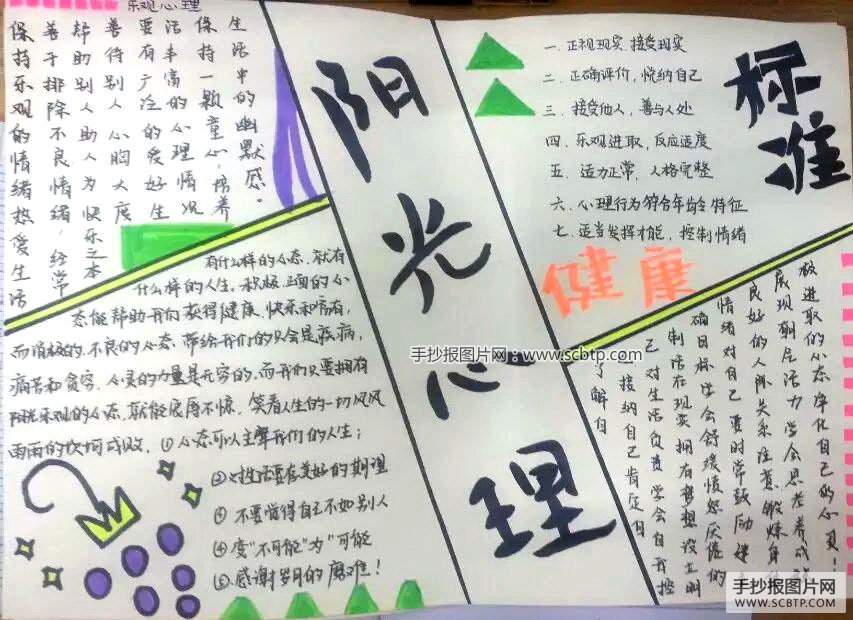 乐观心理
保持乐观的情绪热爱生活
善于排除不良情绪，经常
帮助别人助人为快乐之本
善待别人心胸大度
要有广泛的爱好生
活丰富的心理情况
保持一颗童心，培养
生活中的幽默感。
有什么样的心态,就有
什么样的人生。积极、正面的心
态能帮助我们获得健康、快乐和富有,
而消极的、不良的心态,带给我们的只会是疾病、
痛苦和贫穷。心灵的力量是无穷的,而我们只要拥有
阳光乐观的心态,就能宠辱不惊,笑看人生的一切风风
雨雨的坎坷成败。①心态可以主宰我们的人生;
②对生活要有美好的期望
③ 不要觉得自己不如别人
④变“不可能”为“可能
⑤.感谢岁月的磨难!
阳光心理
标准
一.正视现实.接受现实
二.正确评价,悦纳自己
三.接受他人,善与人处
四.乐观进取,反应适度
五.适力正常,人格完整
六.心理行为符合年龄特征
七.适当发挥才能,控制情绪
健康
了解自
己接纳自己肯定自
己对生活负责学会自我控
制活在现实拥有梦想设立明
确目标学会舒缓愤怒厌倦的
情绪对自己要时常鼓励建
良好的人际关系注意锻炼身
展现朝气活力学会思考养成
极进取的心态净化自己的心灵!
手抄报图片网:www.scbtp.com
手抄报图片网
WWW.SCBTP.COM